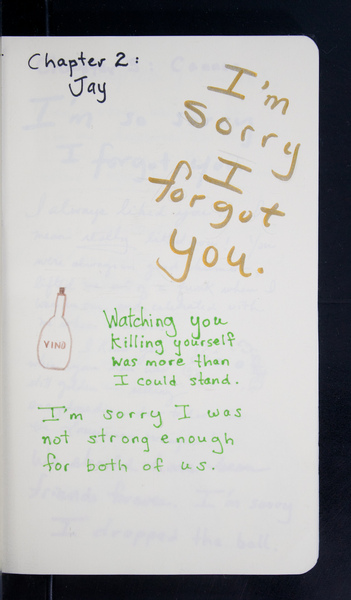 Chapter 2:
Jay
I'm
sorry
I
forgot
you.
VINO
Watching you
killing yourself
was more than
I could stand.
I'm sorry I was
not strong enough
for both of us.